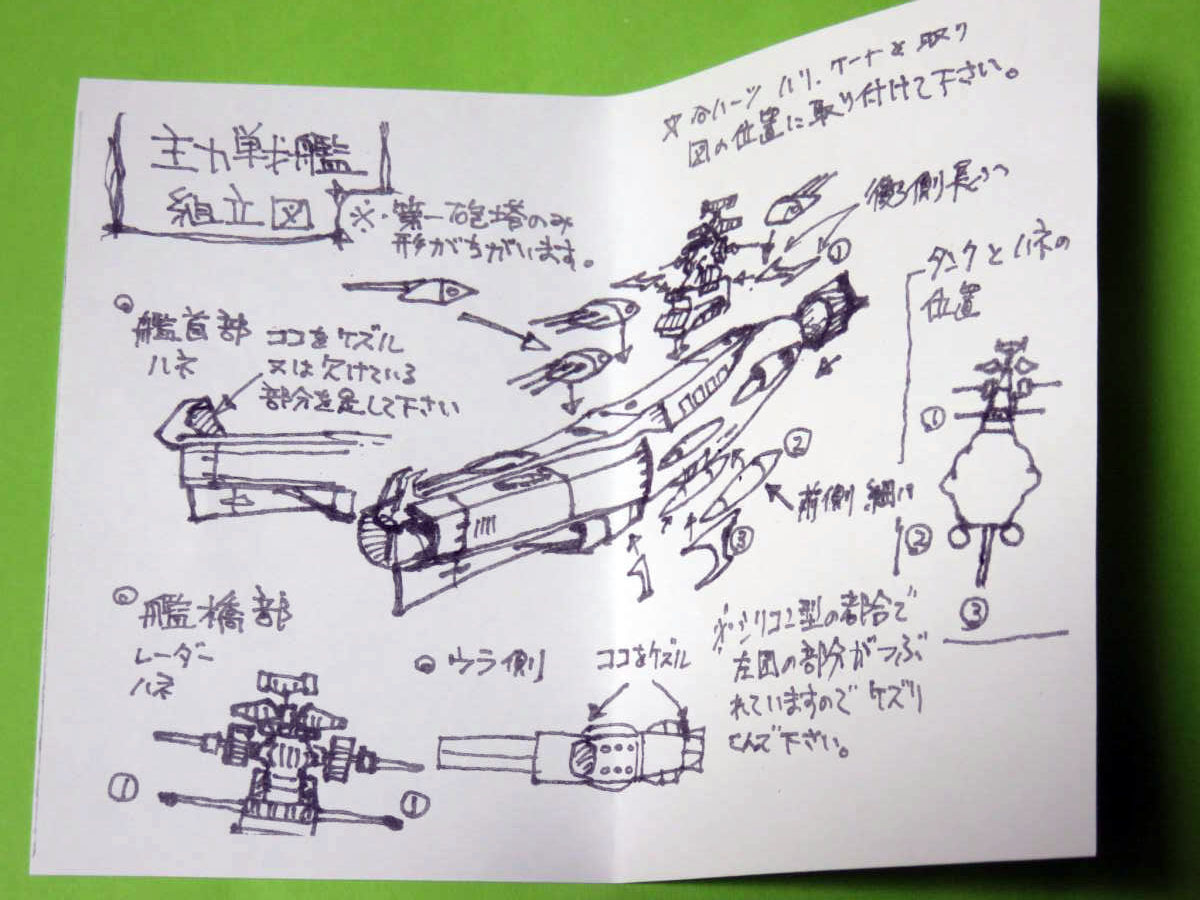 主力戦艦
組立図
※・第一砲塔のみ
形がちがいます。
※各パーツ バリ、ゲートを取り
図の位置に取り付けて下さい。
後ろ側長い
①
タンクとハネの
位置
艦首部
ハネ
ココをケズル
又は欠けている
部分を足して下さい
②
前側 細い
③
①
②
③
艦橋部
レーダー
ハネ
①
①
ウラ側
ココをケズル
※シリコン型の都合で
左図の部分がつぶ
れていますのでケズリ
こんで下さい。